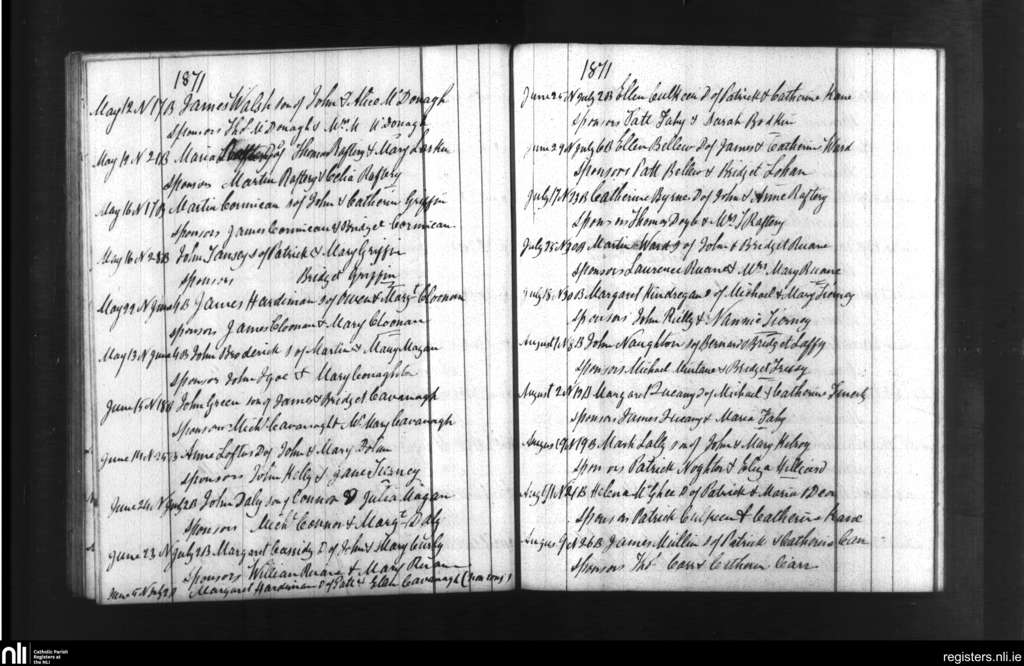 1871
May 12 N 17 B James Walsh son of John & Alice McDonagh
Sponsors Thos McDonagh & Mrs M McDonagh
May 19 N 21 B Maria of Thomas Raftery & Mary Larkin
Sponsors Martin Raftery & Celia Raftery
May 16 N 17 B Martin Cormican s of John & Catherin Griffin
Sponsors James Cormican & Bridget Cormican
May 16 N 28 B John Tansey s of Patrick & Mary Griffin
Sponsors Bridget Griffin
May 29 N June 4 B James Hardiman s of Owen & Margt Cloonan
Sponsors James Cloonan & Mary Cloonan
May 13 N June 4 B John Broderick s of Martin & Mary Magan
Sponsor John Igoe & Mary Conaghton
June 15 N 18 B John Green son of James & Bridget Cavanagh
Sponsors Mich Cavanagh & Mrs Mary Cavanagh
June N 25 B Anne Loftus D of John & Mary Dolan
Sponsors John Kelly & Jane Tierney
June 24 N July 2 B John Daly son of Connor & Julia Magan
Sponsors Michl Connor & Margt Daly
June 23 N July 2 B Margaret Cassidy D of John & Mary Curly
Sponsors William Ruane & Mary Ruane
Margaret Hardiman D of Patt & Ellen Cavanagh
1871
June 25 N July 2 B Ellen Culkeen D of Patrick & Catherine Kane
Sponsors Patt Fahy & Sarah Bodkin
June 29 N July 6 B Ellen Bellew D of James & Catherine Ward
Sponsors Patt Bellew & Bridget Lohan
July 17 N 23 B Catherine Byrne D of John & Anne Raftery
Sponsors Thomas Doyle & Mrs J Raftery
July 25 N 30 B Martin Ward s of John & Bridget Ruane
Sponsors Laurence Ruane & Mrs Mary Ruane
July 18 N 30 B Margaret Hindregan D of Michael & Mary Tierney
Sponsors John Reilly & Nannie Tierney
August N 8 B John Naughton s of Bernard & Bridget Laffy
Sponsors Michael & Bridget
August 2 N 13 B Margaret D of Michael & Catherine
Sponsors James & Maria Fahy
August 19 B Mark Lally son of John & Mary Kilroy
Sponsors Patrick Noghton & Eliza
August N 21 B Helena McGhee D of Patrick & Maria
Sponsors Patrick Culkeen & Catherine Kane
August 9 N 26 B James Mullin s of Patrick & Catherine
Sponsors Thos Carr & Catherin Carr
nli
Catholic Parish
Registers at
the NLI
registers.nli.ie